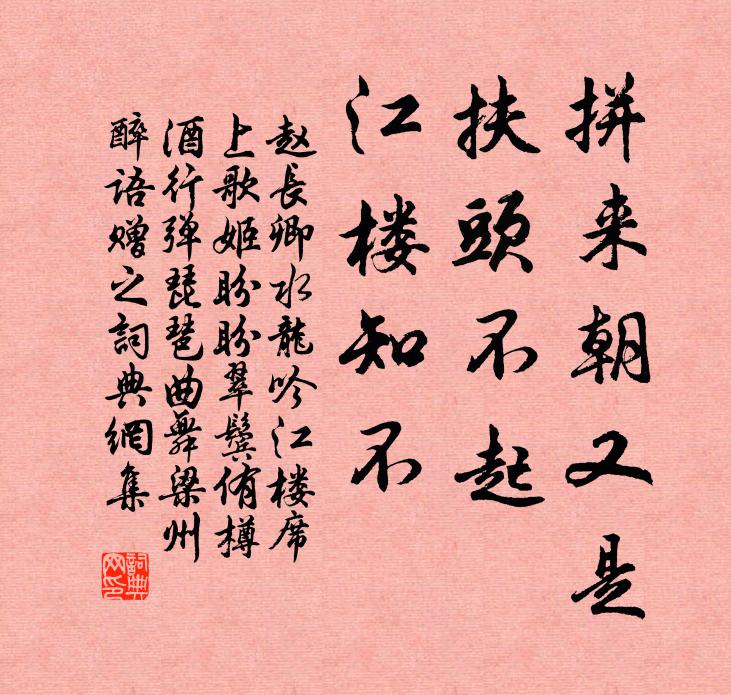 拼来朝又是
扶頭不起
江楼知不
赵長卿水龍吟江楼席
上歌姬盼盼翠鬟侑樽
酒行弹琵琶曲舞梁州
醉语赠之詞典網集
詞典
网印